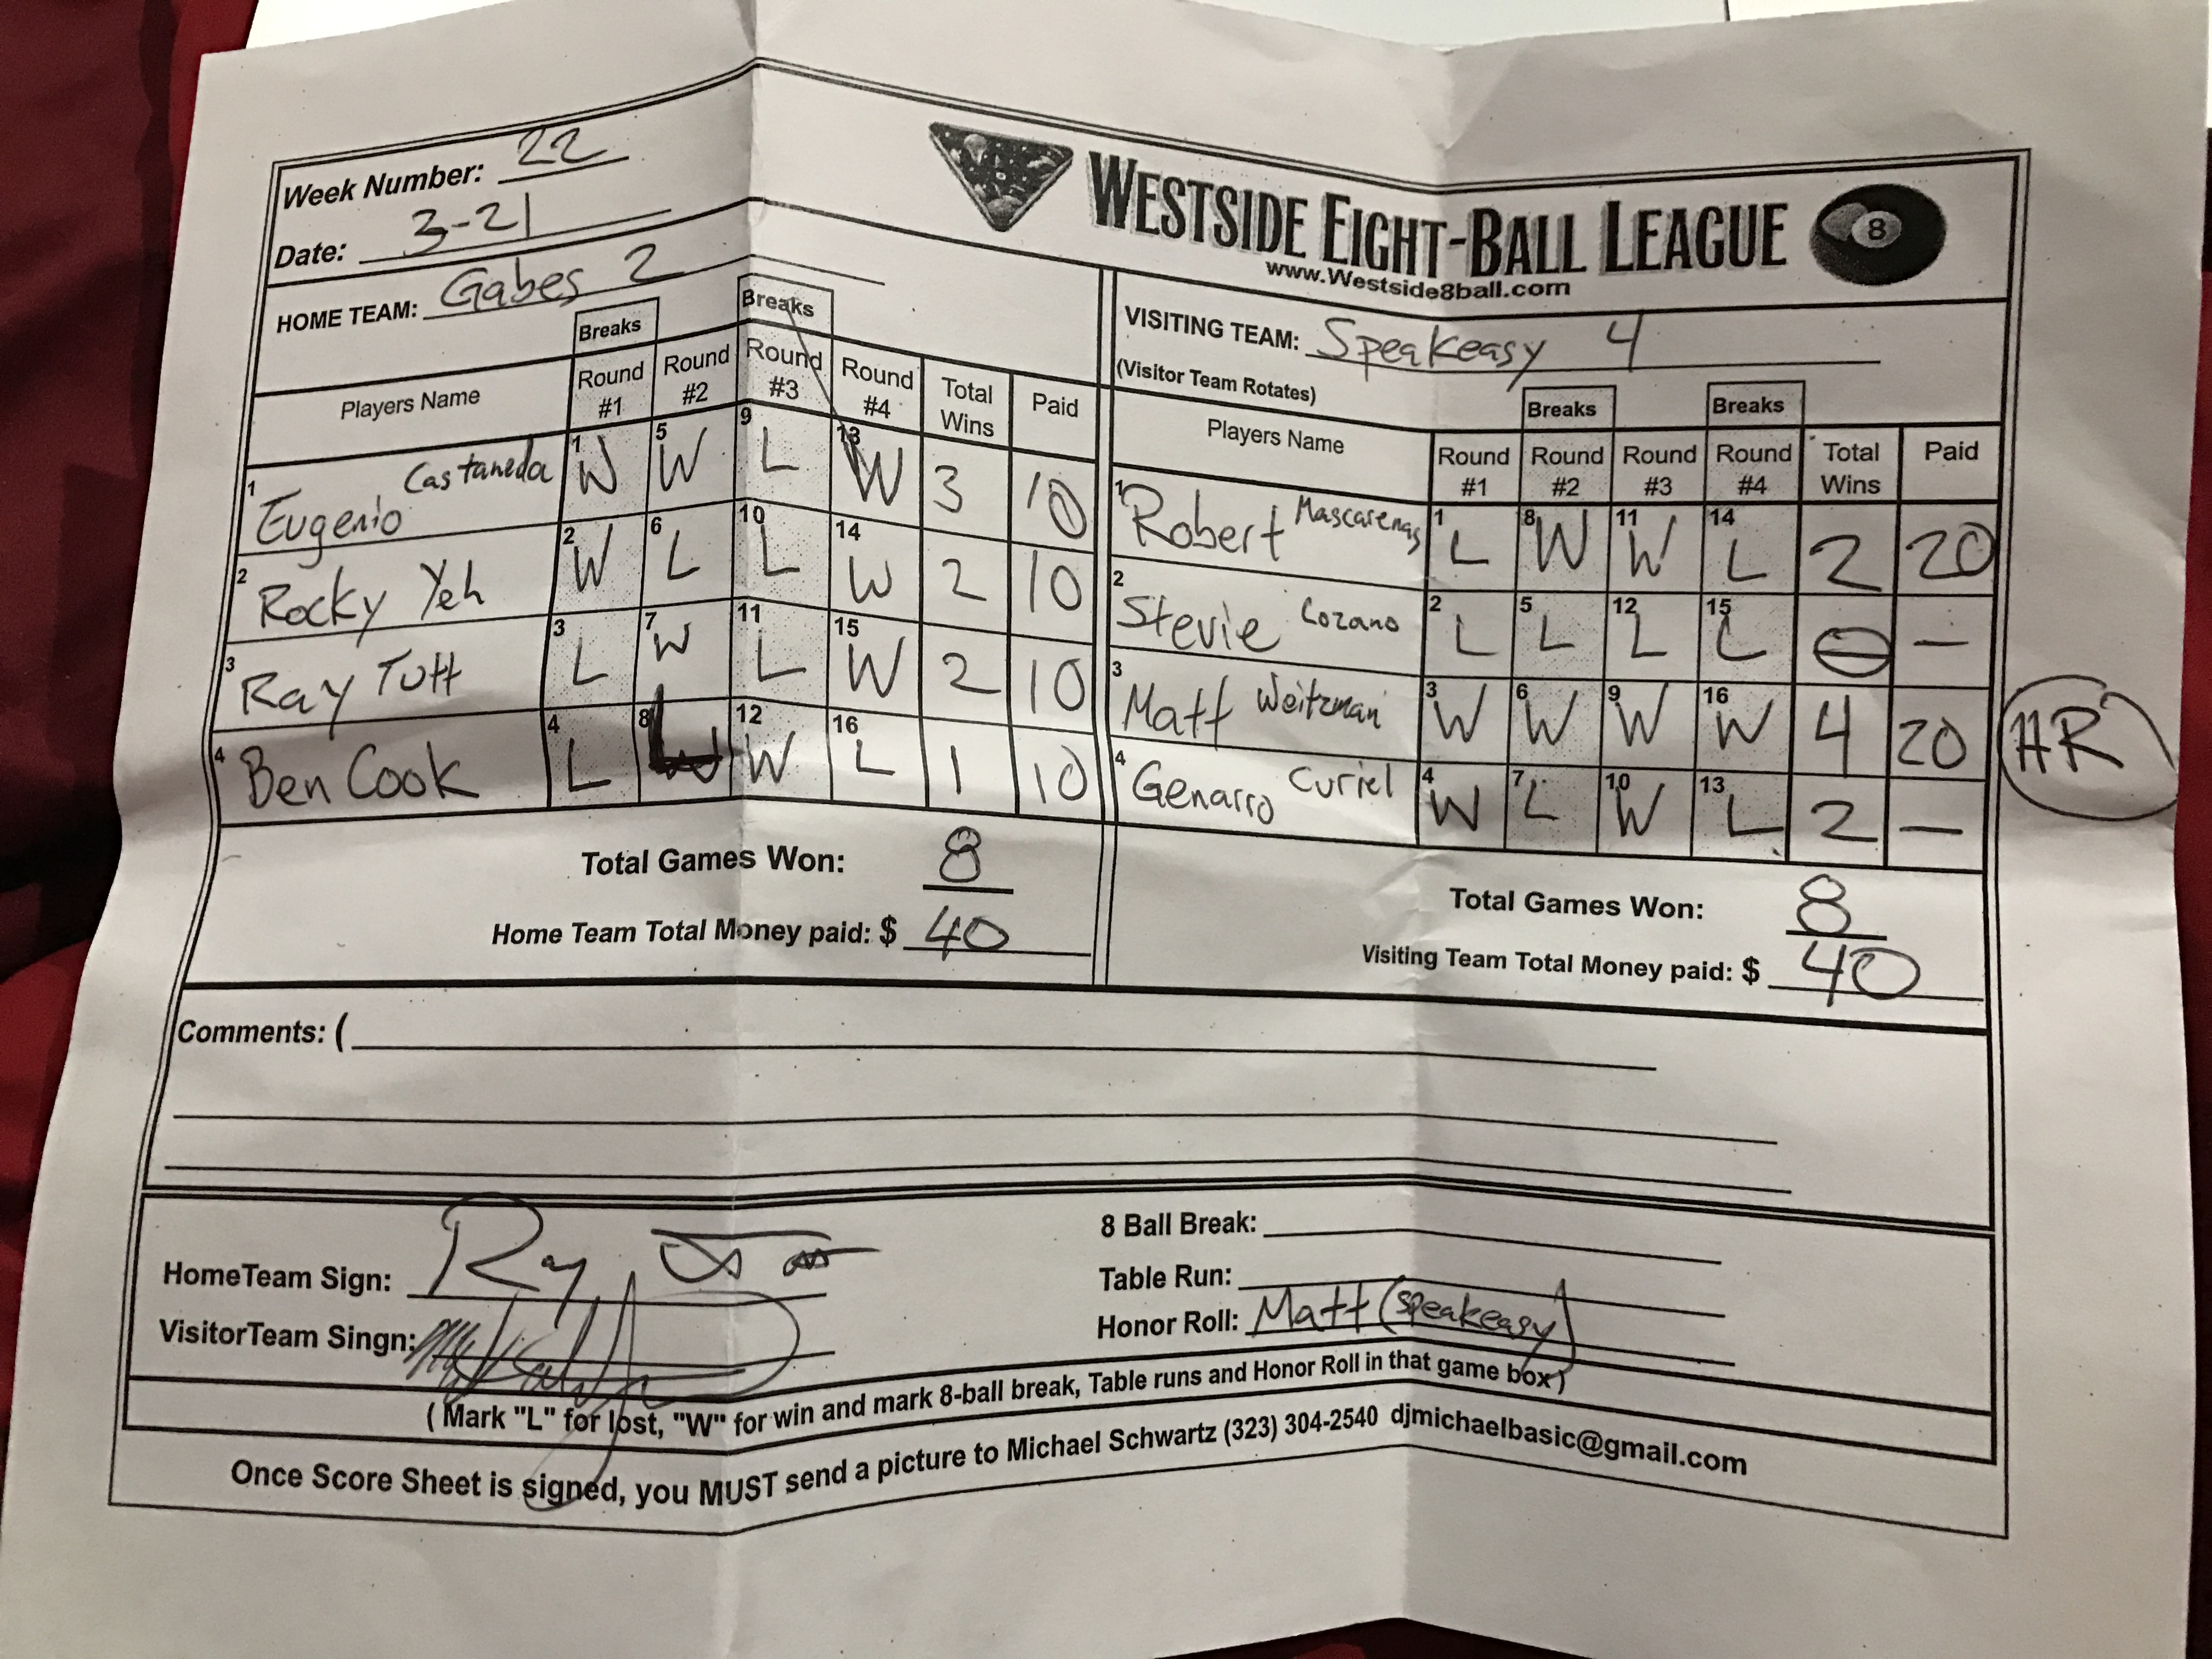 Week Number: 22
Date: 3-21
WESTSIDE EIGHT-BALL LEAGUE 8
www.Westside8ball.com
HOME TEAM: Gabes 2
Breaks Breaks
Players Name Round #1 Round #2 Round #3 Round #4 Total Wins Paid
1 Eugenio Castaneda 1 W 5 W 9 L 13 W 3 10
2 Rocky Yeh 2 W 6 L 10 L 14 W 2 10
3 Ray Tutt 3 L 7 W 11 L 15 W 2 10
4 Ben Cook 4 L 8 L 12 W 16 L 1 10
Total Games Won: 8
Home Team Total Money paid: $ 40
VISITING TEAM: Speakeasy 4
(Visitor Team Rotates)
Breaks Breaks
Players Name Round #1 Round #2 Round #3 Round #4 Total Wins Paid
1 Robert Mascarenas 1 L 8 W 11 W 14 L 2 20
2 Stevie Lozano 2 L 5 L 12 L 15 L 0 —
3 Matt Weitzman 3 W 6 W 9 W 16 W 4 20 HR
4 Genarro Curiel 4 W 7 L 10 W 13 L 2 —
Total Games Won: 8
Visiting Team Total Money paid: $ 40
Comments: (
HomeTeam Sign: Ray
VisitorTeam Singn:
8 Ball Break:
Table Run:
Honor Roll: Matt (speakeasy)
( Mark "L" for lost, "W" for win and mark 8-ball break, Table runs and Honor Roll in that game box)
Once Score Sheet is signed, you MUST send a picture to Michael Schwartz (323) 304-2540 djmichaelbasic@gmail.com